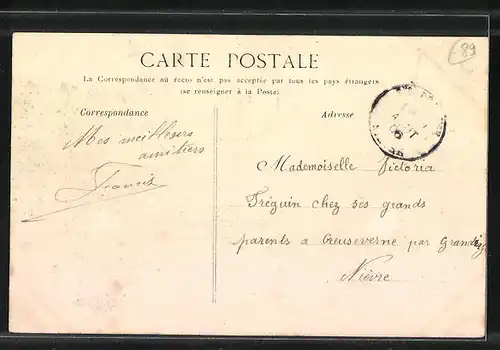 89
CARTE POSTALE
La Correspondance au recto n'est pas acceptée par tous les pays étrangers
(se renseigner à la Poste)
Correspondance
Adresse
Mes meilleures
amitiers
Francis
Mademoiselle Victoria
Tréguin chez ses grands
parents a Creuseverne par
Nièvre